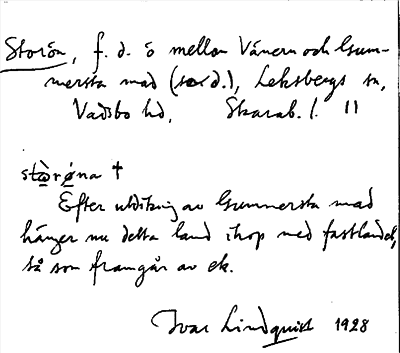 Storön, f. d. ö mellan Vänern och Gum-
mersta mad (so d.), Leksbergs sn,
Vadsbo hd, Skarab. l. 11
stòrǿna †
Efter utdikning av Gummersta mad
hänger nu detta land ihop med fastlandet,
så som framgår av ek.
Ivar Lindquist 1928